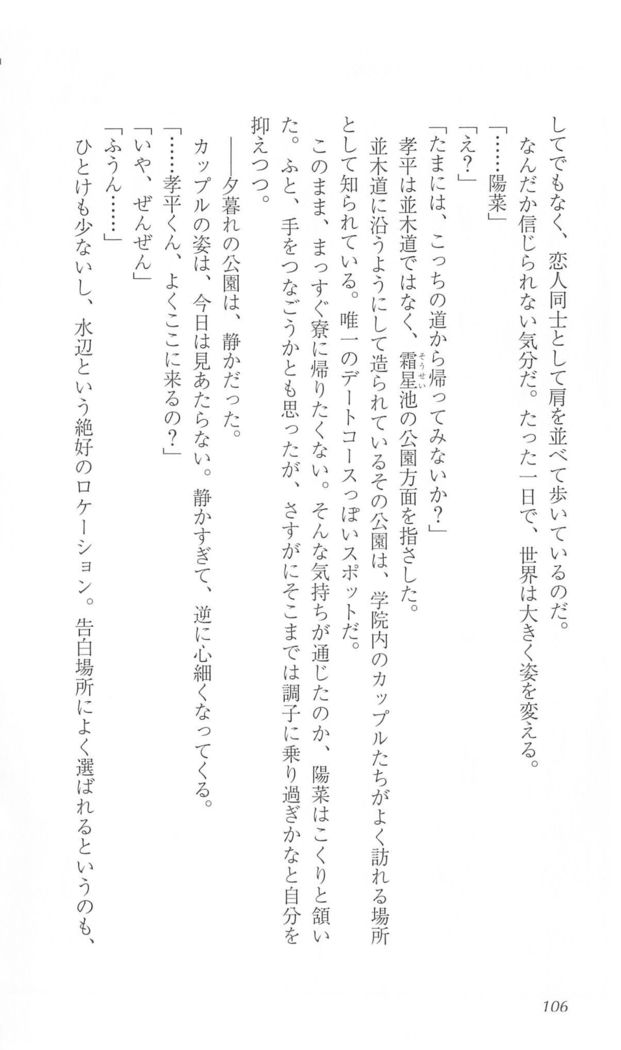 してでもなく、恋人同士として肩を並べて歩いているのだ。
なんだか信じられない気分だ。たった一日で、世界は大きく姿を変える。
「……陽菜」
「え?」
「たまには、こっちの道から帰ってみないか?」
孝平は並木道ではなく、霜星池の公園方面を指さした。
そうせい
並木道に沿うようにして造られているその公園は、学院内のカップルたちがよく訪れる場所
として知られている。唯一のデートコースっぽいスポットだ。
このまま、まっすぐ寮に帰りたくない。そんな気持ちが通じたのか、陽菜はこくりと頷い
た。ふと、手をつなごうかとも思ったが、さすがにそこまでは調子に乗り過ぎかなと自分を
抑えつつ。
――夕暮れの公園は、静かだった。
カップルの姿は、今日は見あたらない。静かすぎて、逆に心細くなってくる。
「……孝平くん、よくここに来るの?」
「いや、ぜんぜん」
「ふうん……」
ひとけも少ないし、水辺という絶好のロケーション。告白場所によく選ばれるというのも、
106